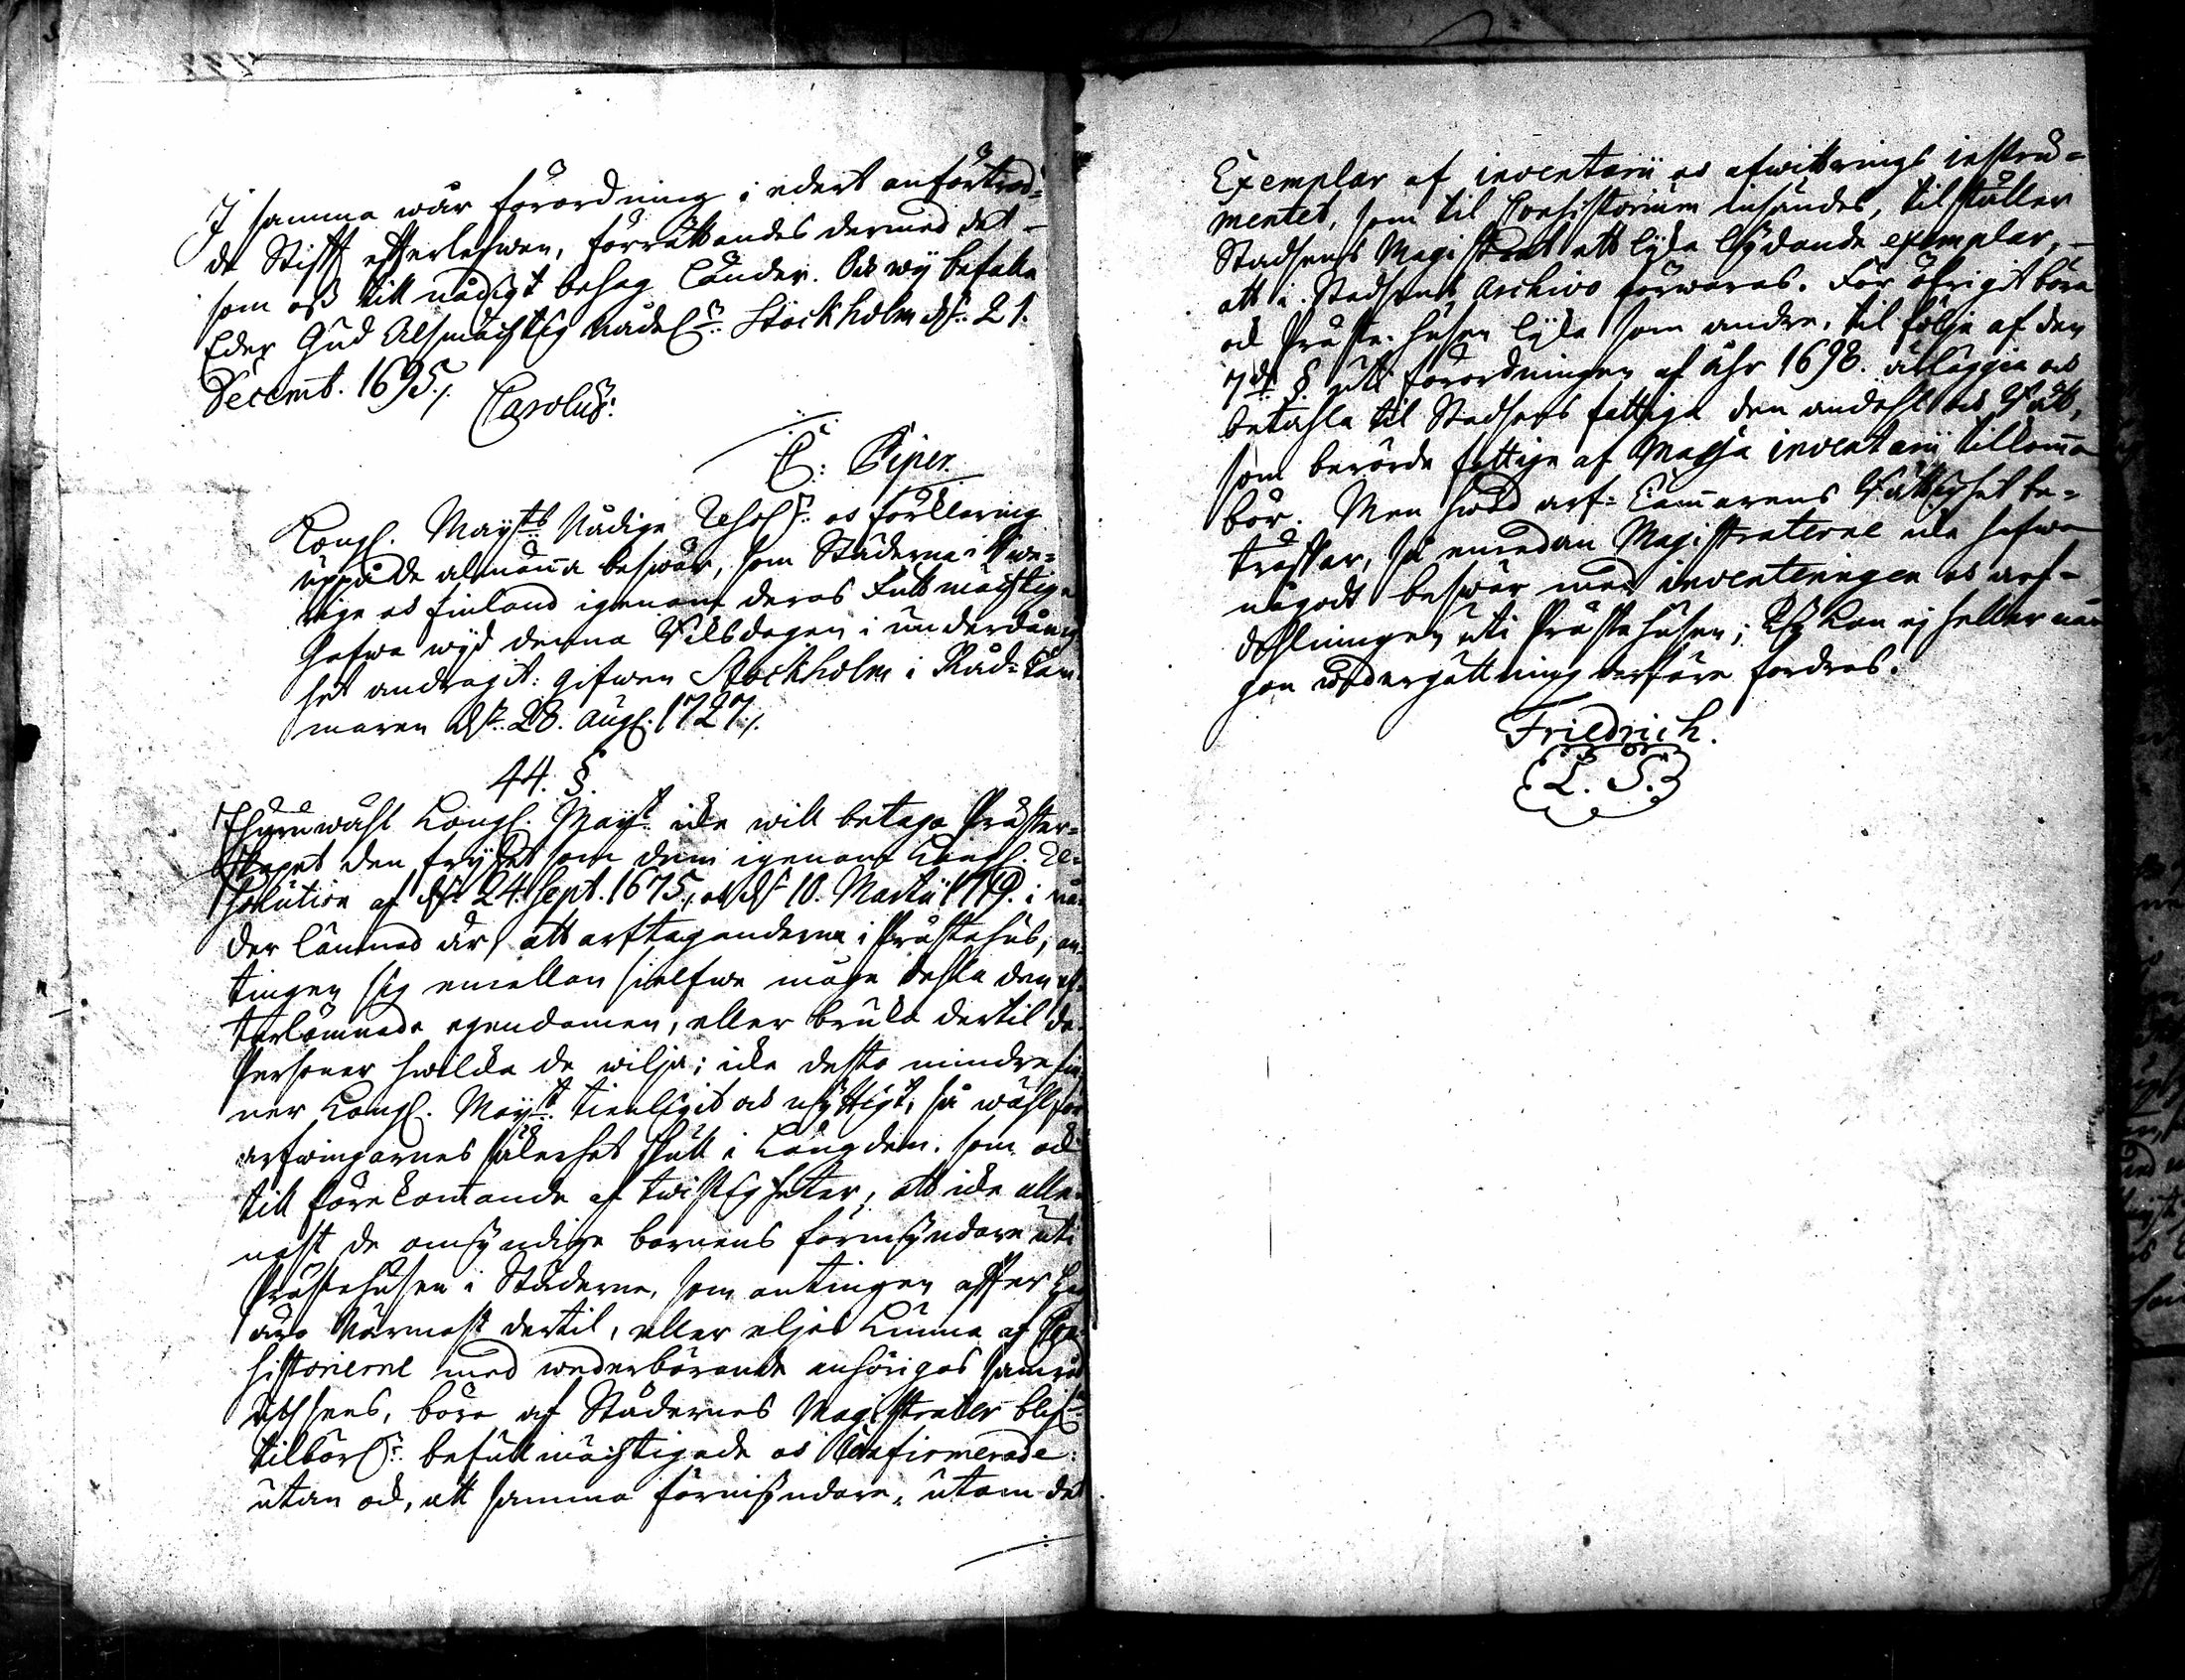 I samma wår förordning i edert anförtrod=
de Stifft efterlefwen, förrättandes dermed det -
som oß till nådigt behag länder. Och wij befalle
Eder Gud Alsmächtig nådel:n Stockholm d:n 21.
Decemb. 1695./.
Carolus:
C: Piper.
Kongl. Maij:ts Nådige Resol:n och förklaring
uppå de almänna beswär, som Städerne i Swe=
rige och Finland igenom deras Fullmächtige
hafwa wijd denna Riksdagen i underdånig
het andragit: gifwen Stockholm i Råd=kam
maren d:n 28. Aug. 1727./.
44. §.
Ehuruwähl Kongl. Maij:t icke will betaga Präster=
skapet den frijhet som dem igenom Kongl. Re=
solution af d:n 24. Sept. 1675, och d:n 10. Martii 1719. i nå=
der lämnad är, att arftaganderne i Prästehus, an=
tingen sig emellan sielfwe måge dehla den ef=
terlämnade egendomen, eller bruka dertil de
Personer hwilka de wilja; icke desto mindre fin
ner Kongl. Maij:t tienligit och nyttigt, så wähl för
arfwingarnes säkerhet skull i Längden. som ock
till förekommande af twistigheter, att icke alle=
nast de omyndige barnens förmyndare uti
Prästehusen i Städerne, som antingen efter Lag
äro Närmast dertil, eller eljes kunna af Con=
sistorierne med wederbörande anhörigas samråd
utsees, böra af Städernes Magistrater blif:a
tilbörl:n befullmächtigade och Confirmerade:
utan ock, att samma förmyndare, utom det
Exemplar af inventarii och afwittrings instru=
mentet, som til Consistorium insändes, tilställer
Stadsens Magistrat ett lijka lydande exemplar, -
att i Stadsens Archivo förwaras. För öfrigit böra
ock Prästehusen lijka som andre, til följe af den
7:de § uti förordningen af åhr 1698. afläggia och
betahla til Stadsens fattiga den andehl och Rätt,
som berörde fattige af Massa inventarii tillkomma
bör. Men hwad arf=Cammarens Rättighet be=
träffar, så emedan Magistraterne icke hafwa
någodt beswär med inventeringen och arf=
dehlningen uti Prästehusen; Ty kan ej heller nå
gon wedergällning derföre fordras.
Friedrich.
L. S.